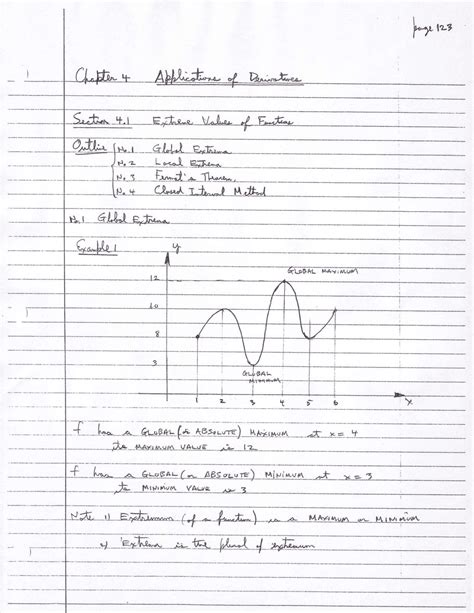 page 123
Chapter 4 Applications of Derivatives
Section 4.1 Extreme Values of Functions
Outline No.1 Global Extrema
No.2 Local Extrema
No.3 Fermat's Theorem
No.4 Closed Interval Method
No.1 Global Extrema
Example 1
y
GLOBAL MAXIMUM
12
10
8
3
GLOBAL
MINIMUM
1 2 3 4 5 6 x
f has a GLOBAL (or ABSOLUTE) MAXIMUM at x = 4
its MAXIMUM VALUE is 12
f has a GLOBAL (or ABSOLUTE) MINIMUM at x = 3
its MINIMUM VALUE is 3
Note 1) Extremum (of a function) is a MAXIMUM or MINIMUM
2) Extrema is the plural of extremum